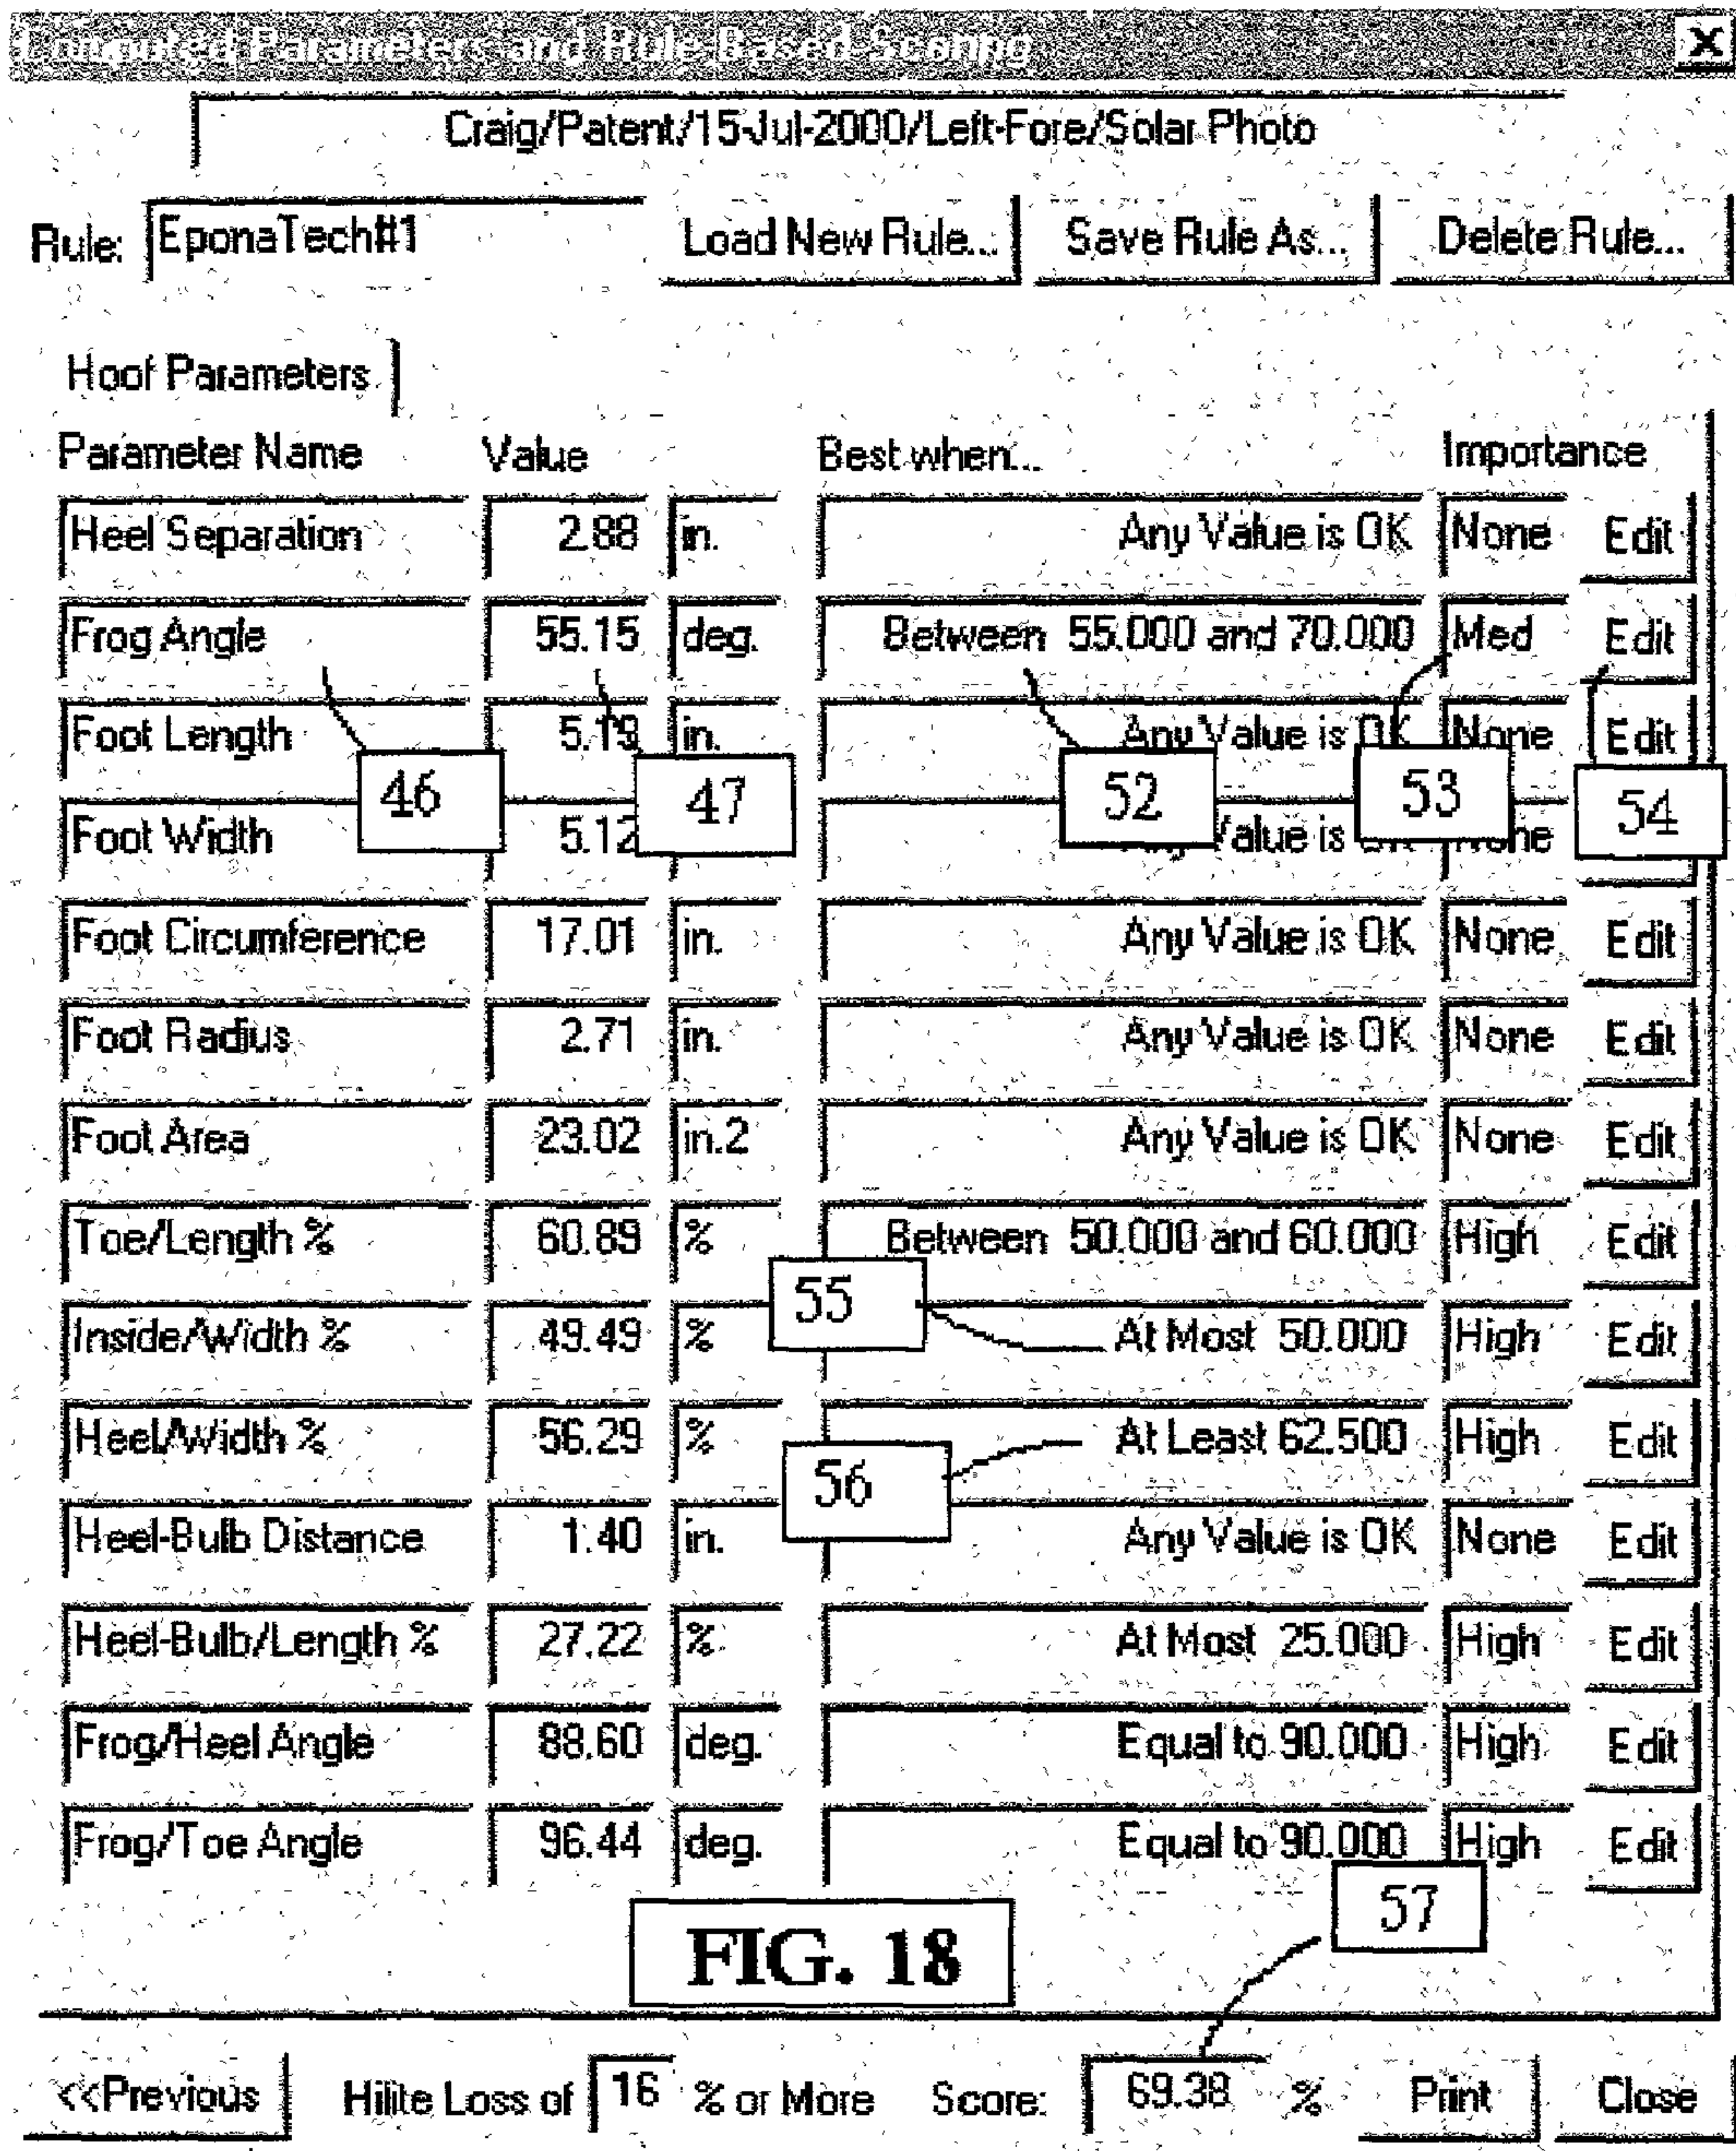 Computed Parameters and Rule-Based Scoring X
Craig/Patent/15-Jul-2000/Left-Fore/Solar Photo
Rule: EponaTech#1 Load New Rule... Save Rule As... Delete Rule...
Hoof Parameters
Parameter Name Value Best when... Importance
Heel Separation 2.88 in. Any Value is OK None Edit
Frog Angle 55.15 deg. Between 55.000 and 70.000 Med Edit
Foot Length 5.19 in. Any Value is OK None Edit
46 47 52 53 54
Foot Width 5.12 Value is
Foot Circumference 17.01 in. Any Value is OK None Edit
Foot Radius 2.71 in. Any Value is OK None Edit
Foot Area 23.02 in.2 Any Value is OK None Edit
Toe/Length % 60.89 % Between 50.000 and 60.000 High Edit
55
Inside/Width % 49.49 % At Most 50.000 High Edit
Heel/Width % 56.29 % At Least 62.500 High Edit
56
Heel-Bulb Distance 1.40 in. Any Value is OK None Edit
Heel-Bulb/Length % 27.22 % At Most 25.000 High Edit
Frog/Heel Angle 88.60 deg. Equal to 90.000 High Edit
Frog/Toe Angle 96.44 deg. Equal to 90.000 High Edit
57
FIG. 18
<<Previous Hilite Loss of 16 % or More Score: 69.38 % Print Close